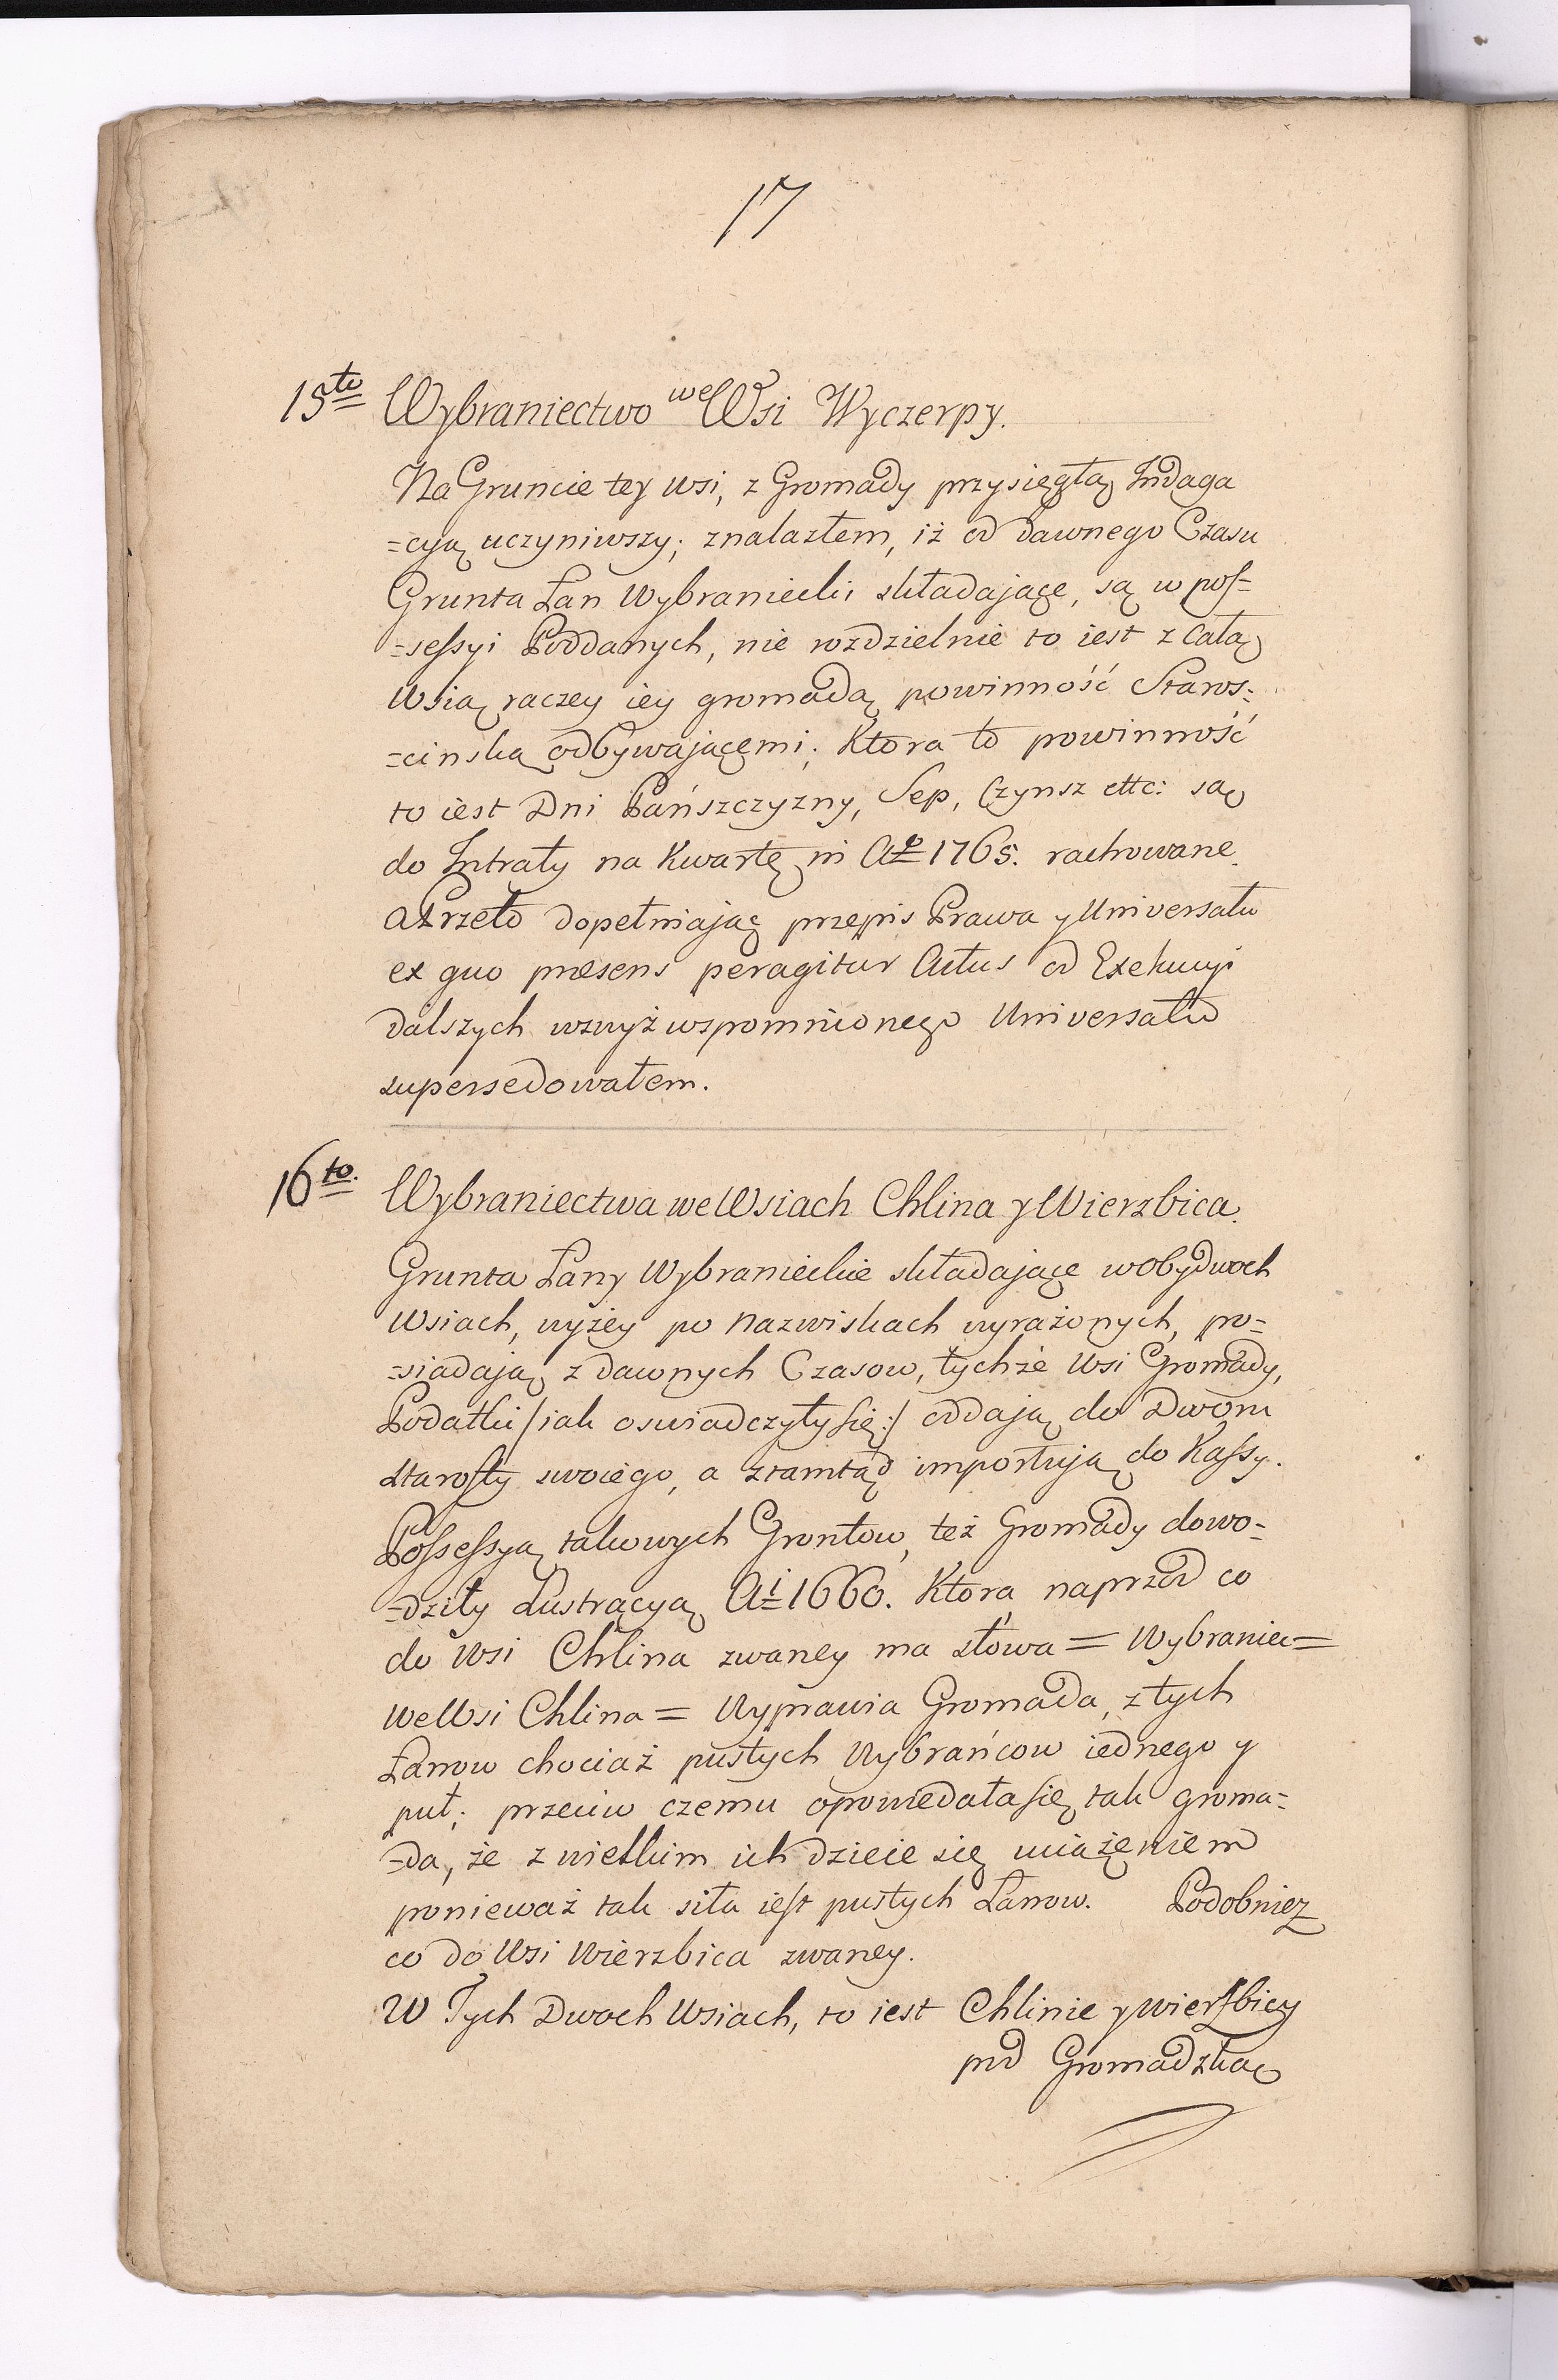 17
15to Wybraniectwo we Wsi Wyczerpy.
Na Gruncie tey wsi, z Gromady przysięgłą Indaga
=cyą uczyniwszy; znalazłem, iż od dawnego Czasu
Grunta Łan Wybraniecki składaiącę, są w pos=
=sessyi Poddanych, nie rozdzielnie to iest z całą
Wsią raczey iey gromadą powinność Staros=
=cinską odbywaiącęmi; Ktora to powinność
to iest Dni Pańszczyzny, Sep, Czynsz ettc: są
do Intraty na Kwartę in Ao 1765. rachowane.
A Przeto dopełniaiąc przepis Prawa y Uniwersału
ex quo præsens peragitur Actus od Exekucyi
dalszych wzwyż wspomnionego Uniwersału
supersedowałem.
16to. Wybraniectwa we Wsiach Chlina y Wierzbica.
Grunta Łany Wybranieckie składaiące w obydwoch
Wsiach, wyżey po nazwiskach wyrażonych, po=
=siadaią z dawnych Czasow, tychże Wsi Gromady,
Podatki /iak oswiadczyły się:/ oddaią do Dworu
Starosty swoiego, a ztamtąd importuią do Kassy.
Possessyą takowych Grontow, też Gromady dowo=
=dziły Lustracyą Ai 1660. Ktora naprzod co
do Wsi Chlina zwaney ma słowa = Wybraniec =
we Wsi Chlina = Wyprawia Gromada, z tych
Łanow chociaż pustych Wybrańcow iednego y
puł; przeciw czemu opowiedała się tak groma=
=da, że z wielkim ich dzieie się uciążęniem
ponieważ tak siła iest pustych Łanow. Podobnież
co do Wsi Wierzbica zwaney.
W Tych Dwoch Wsiach, to iest Chlinie y Wierzbicy
pod Gromadzką